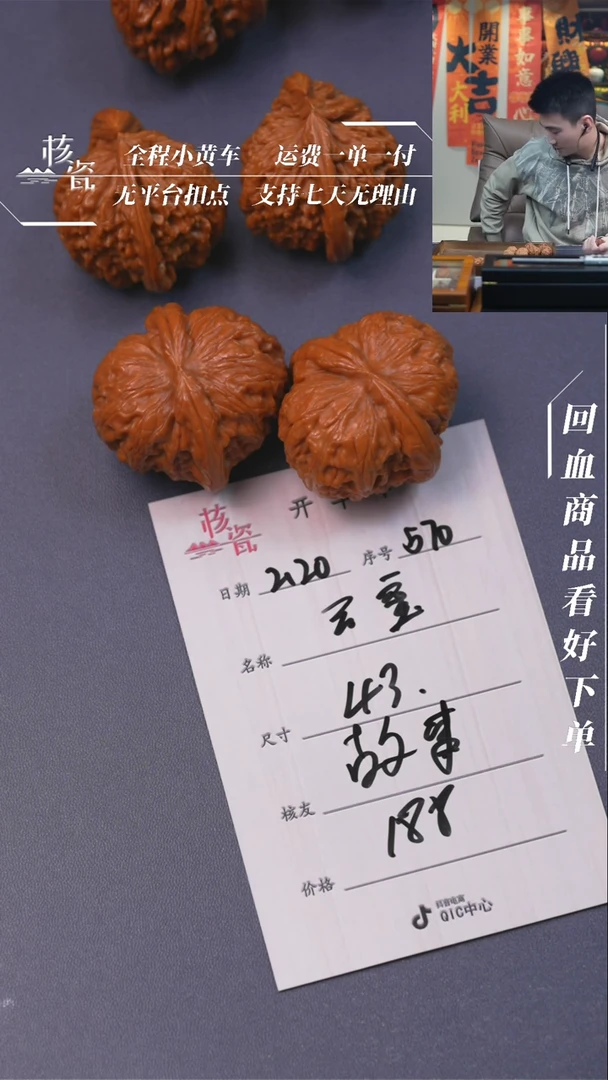 開業
大吉
大利
事事如意
心
財
核瓷
全程小黄车 运费一单一付
无平台扣点 支持七天无理由
回血商品看好下单
核瓷
开
日期 2.20 序号 570
名称
尺寸 43.
核友 故事
价格 188
抖音电商
QIC中心